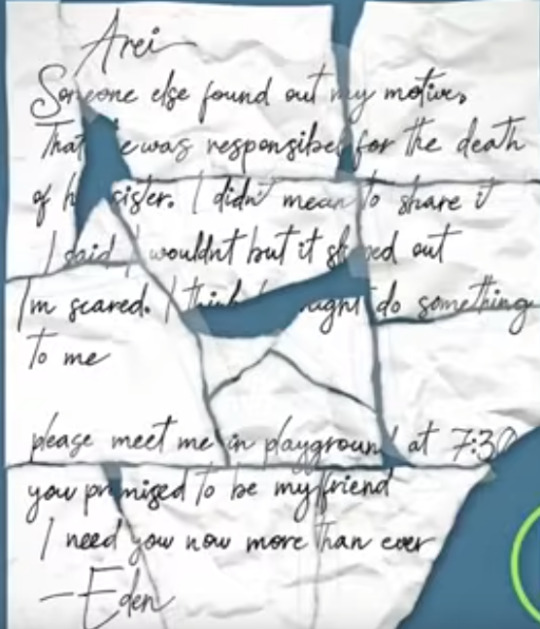 Arei
Someone else found out my motive.
That was responsible for the death
of sister. I didn't mean to share it
I said I wouldnt but it out
Im scared. I think do something
to me
please meet me in playground at 7:30
you promised to be my friend
I need you now more than ever
—Eden